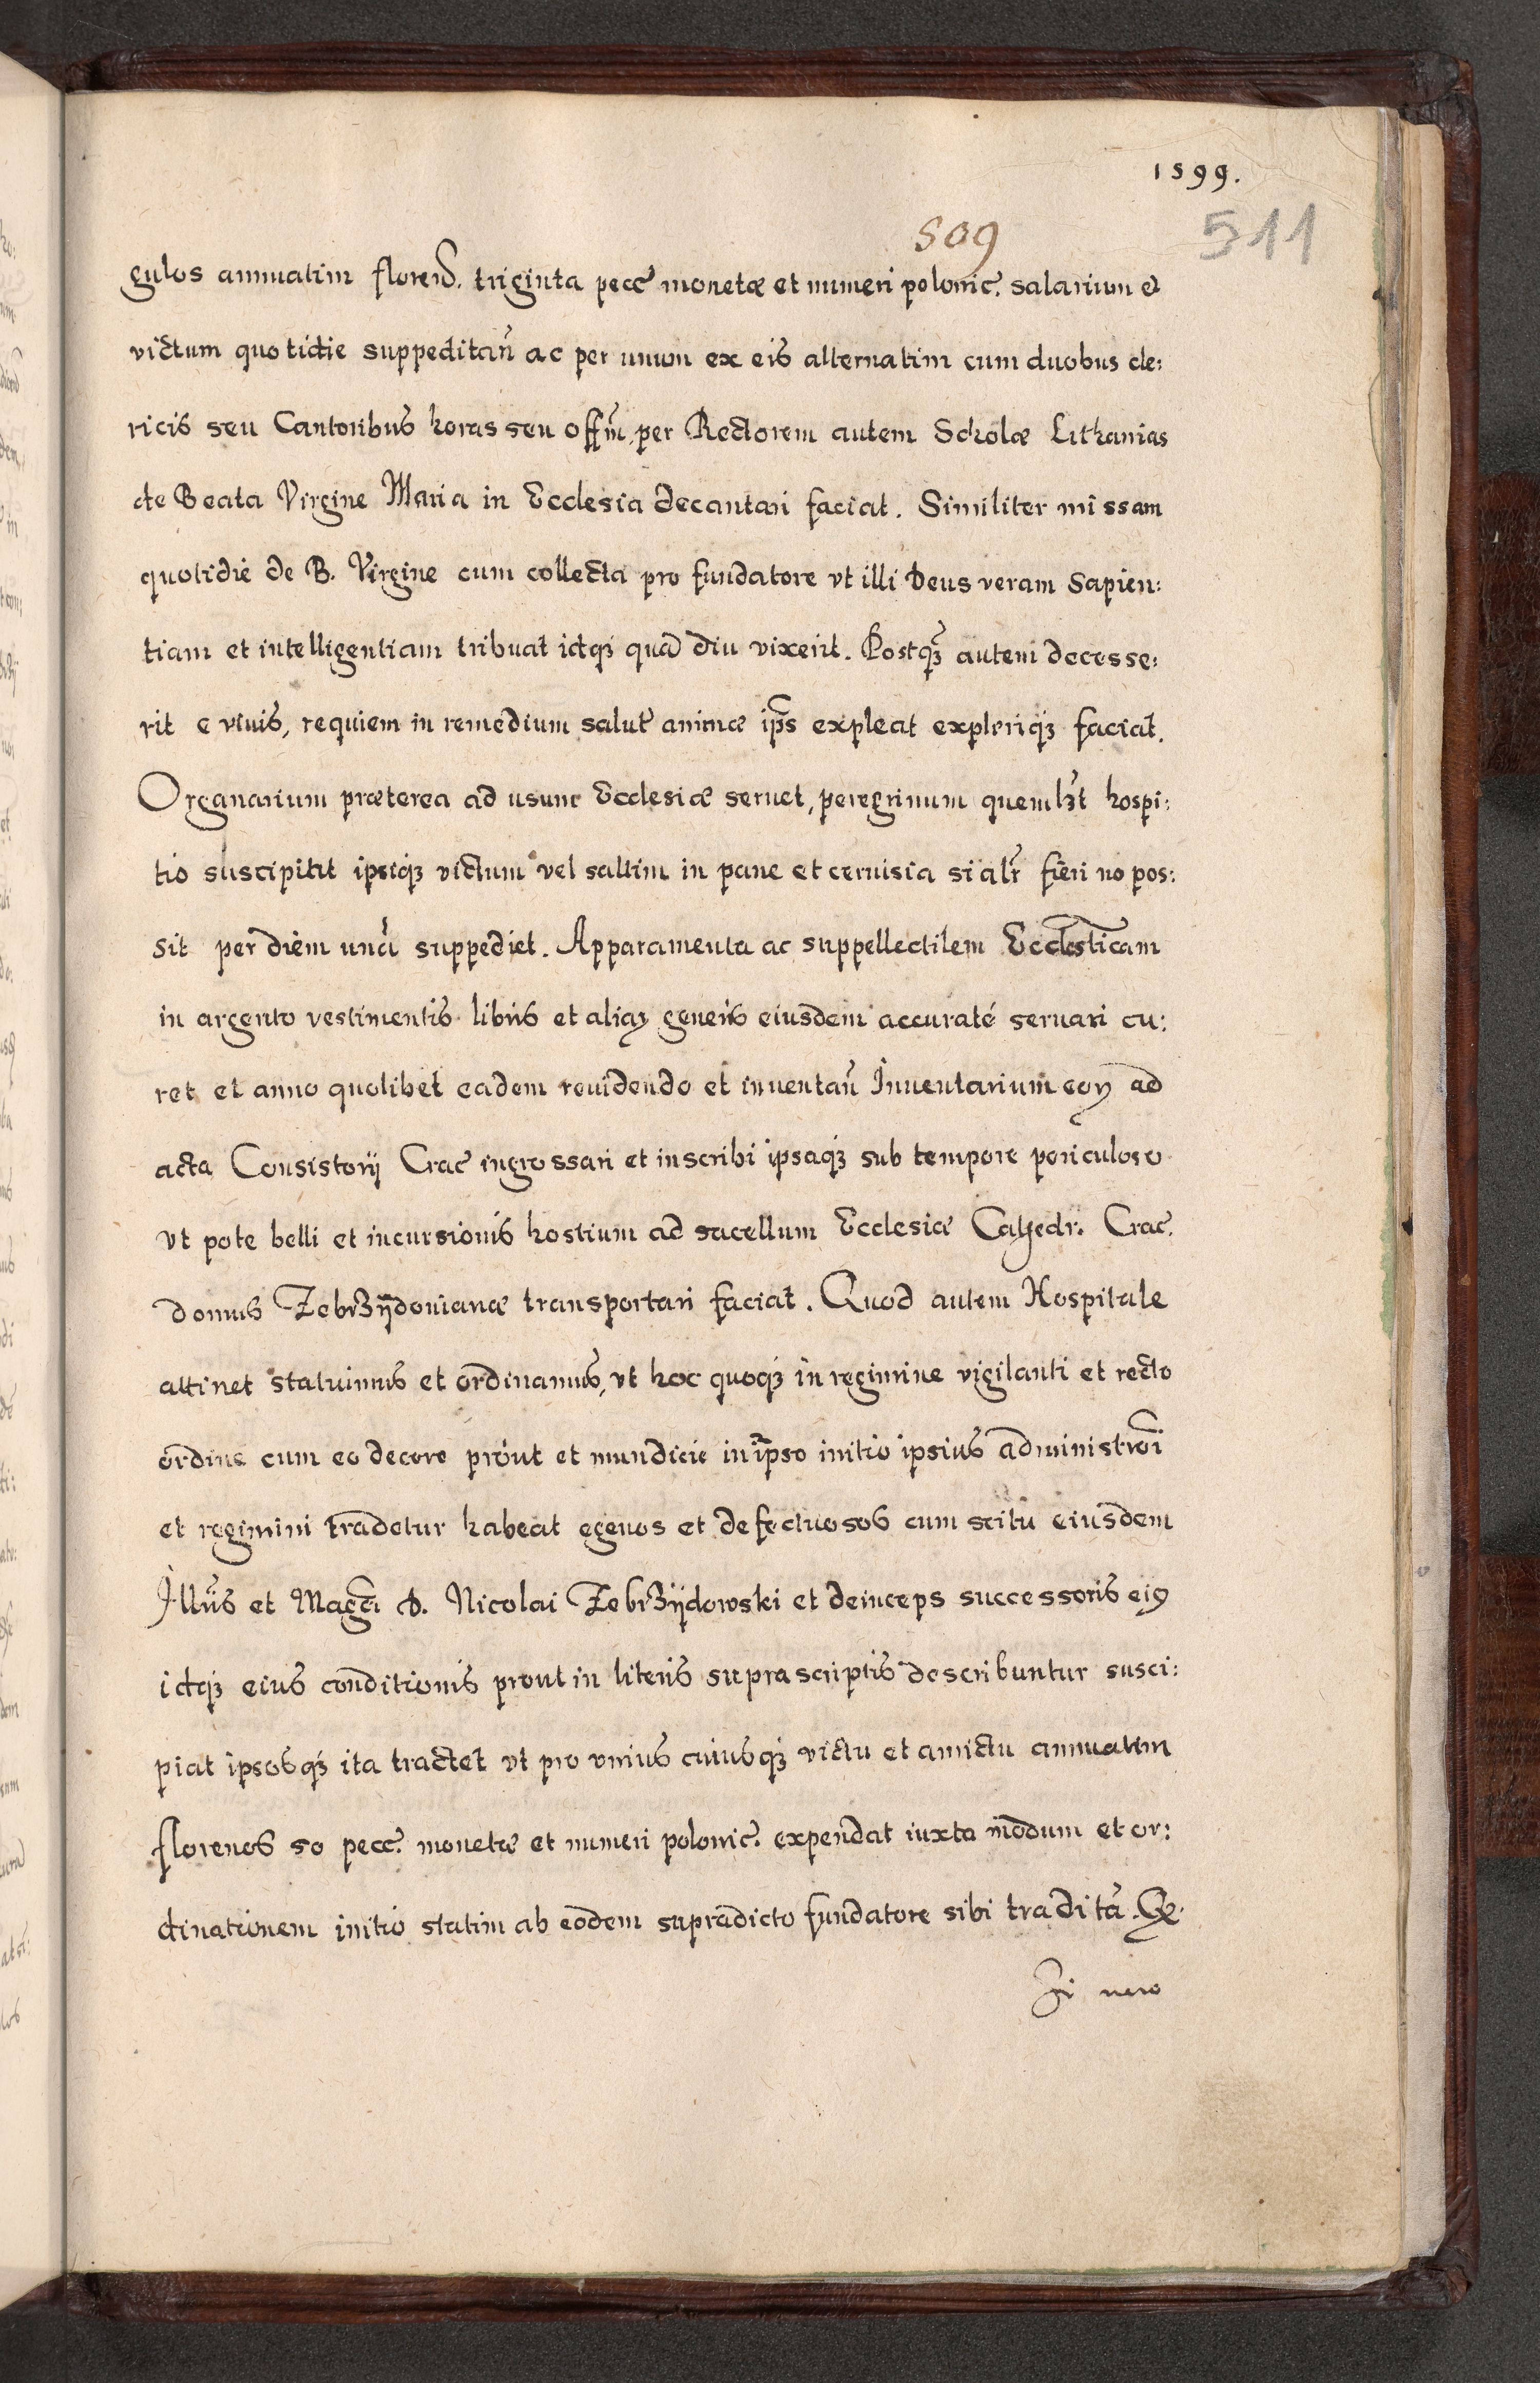 1599.
509
511
gulos annuatim floren̄. triginta pecc̄ monetæ et numeri polonic̄. salarium et
victum quotidie suppeditan̄ ac per unum ex eis alternatim cum duobus cle:
ricis seu Cantoribus horas seu offm̄, per Rectorem autem Scholæ Lithanias
de Beata Virgine Maria in Ecclesia decantari faciat. Similiter missam
quotidie de B. Virgine cum collecta pro fundatore vt illi Deus veram Sapien:
tiam et intelligentiam tribuat idq̢ quā diu vixerit. Postq̢̄ autem decesse:
rit e viuis, requiem in remedium salut̄ animæ ip̄s expleat expleriq̢ faciat.
Organarium præterea ad usum Ecclesiæ seruet, peregrinum quemlꝫt hospi:
tio suscipitit ipsiq̢ victum vel saltim in pane et ceruisia si alr̄ fieri no pos:
sit per diem unā suppediet. Apparamenta ac suppellectilem Eccle̅sticam
in argento vestimentis libris et aliaꝝ generis eiusdem accuraté seruari cu:
ret et anno quolibet eadem reuidendo et inuentan̄ Inuentarium eoꝝ ad
acta Consistorij Crac̄ ingrossari et inscribi ipsaq̢ sub tempore periculoso
vt pote belli et incursionis hostium ad sacellum Ecclesiæ Cathedr. Crac̄.
domus Zebrzÿdouianæ transportari faciat. Quod autem Hospitale
attinet statuimus et ordinamus, vt hoc quoq̢ in regimine vigilanti et recto
ordine cum eo decore prout et mundicie in ipso initio ipsius administrōi
et regimini tradetur habeat egenos et defectuosos cum scitu eiusdem
Illiīs et Magc̄i D. Nicolai Zebrzÿdowski et deinceps successoris eiꝰ
idq̢ eius conditionis prout in literis suprascriptis describuntur susci:
piat ipsosq̢ ita tractet vt pro vnius cuiusq̢ victu et amictu annuatim
florenos 50 pecc̄. monetæ et numeri polonic̄. expendat iuxta modum et or:
dinationem initio statim ab eodem supradicto fundatore sibi traditā. Q̄
Si vero